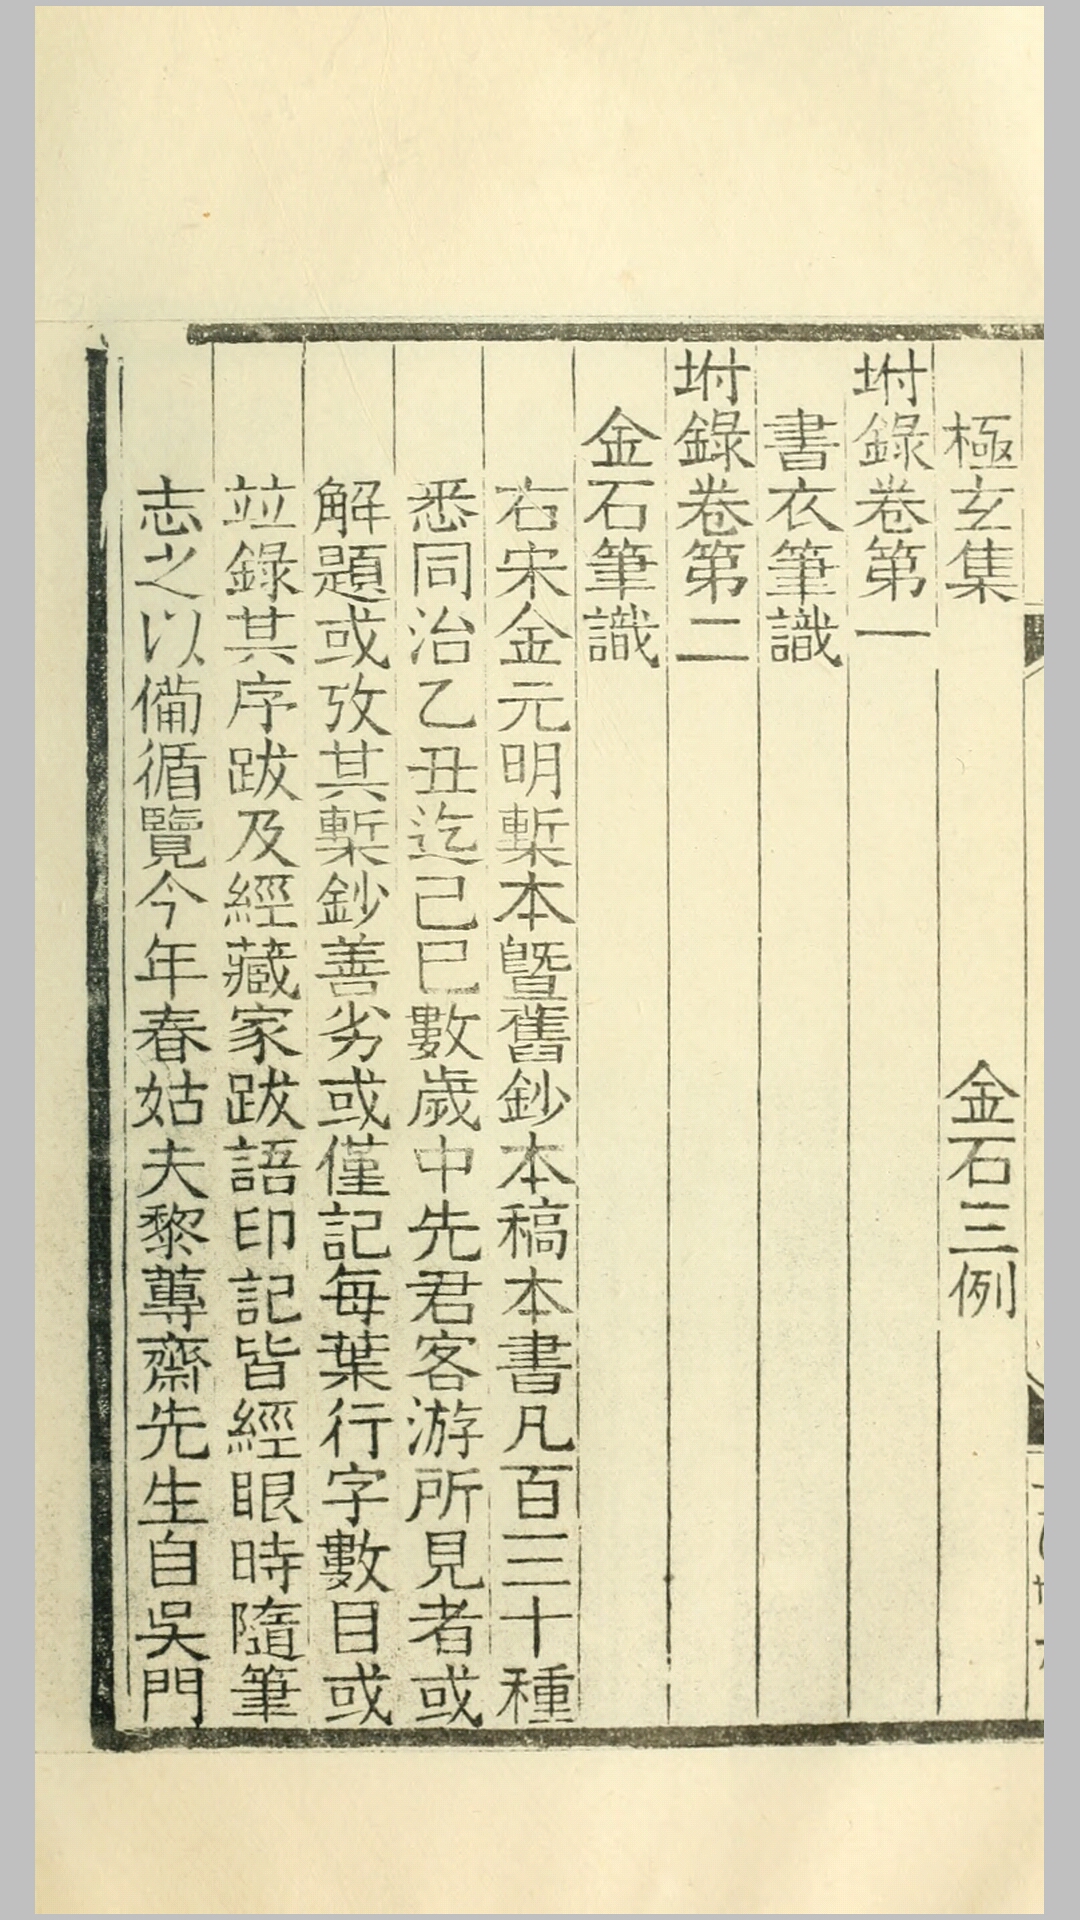 極玄集　金石三例
坿錄卷第一
書衣筆識
坿錄卷第二
金石筆識
右宋金元明槧本曁舊鈔本稿本書凡百三十種
悉同治乙丑迄己巳數歲中先君客游所見者或
解題或攷其槧鈔善劣或僅記每葉行字數目或
竝錄其序跋及經藏家跋語印記皆經眼時隨筆
志之以備循覽今年春姑夫黎蒓齋先生自吳門